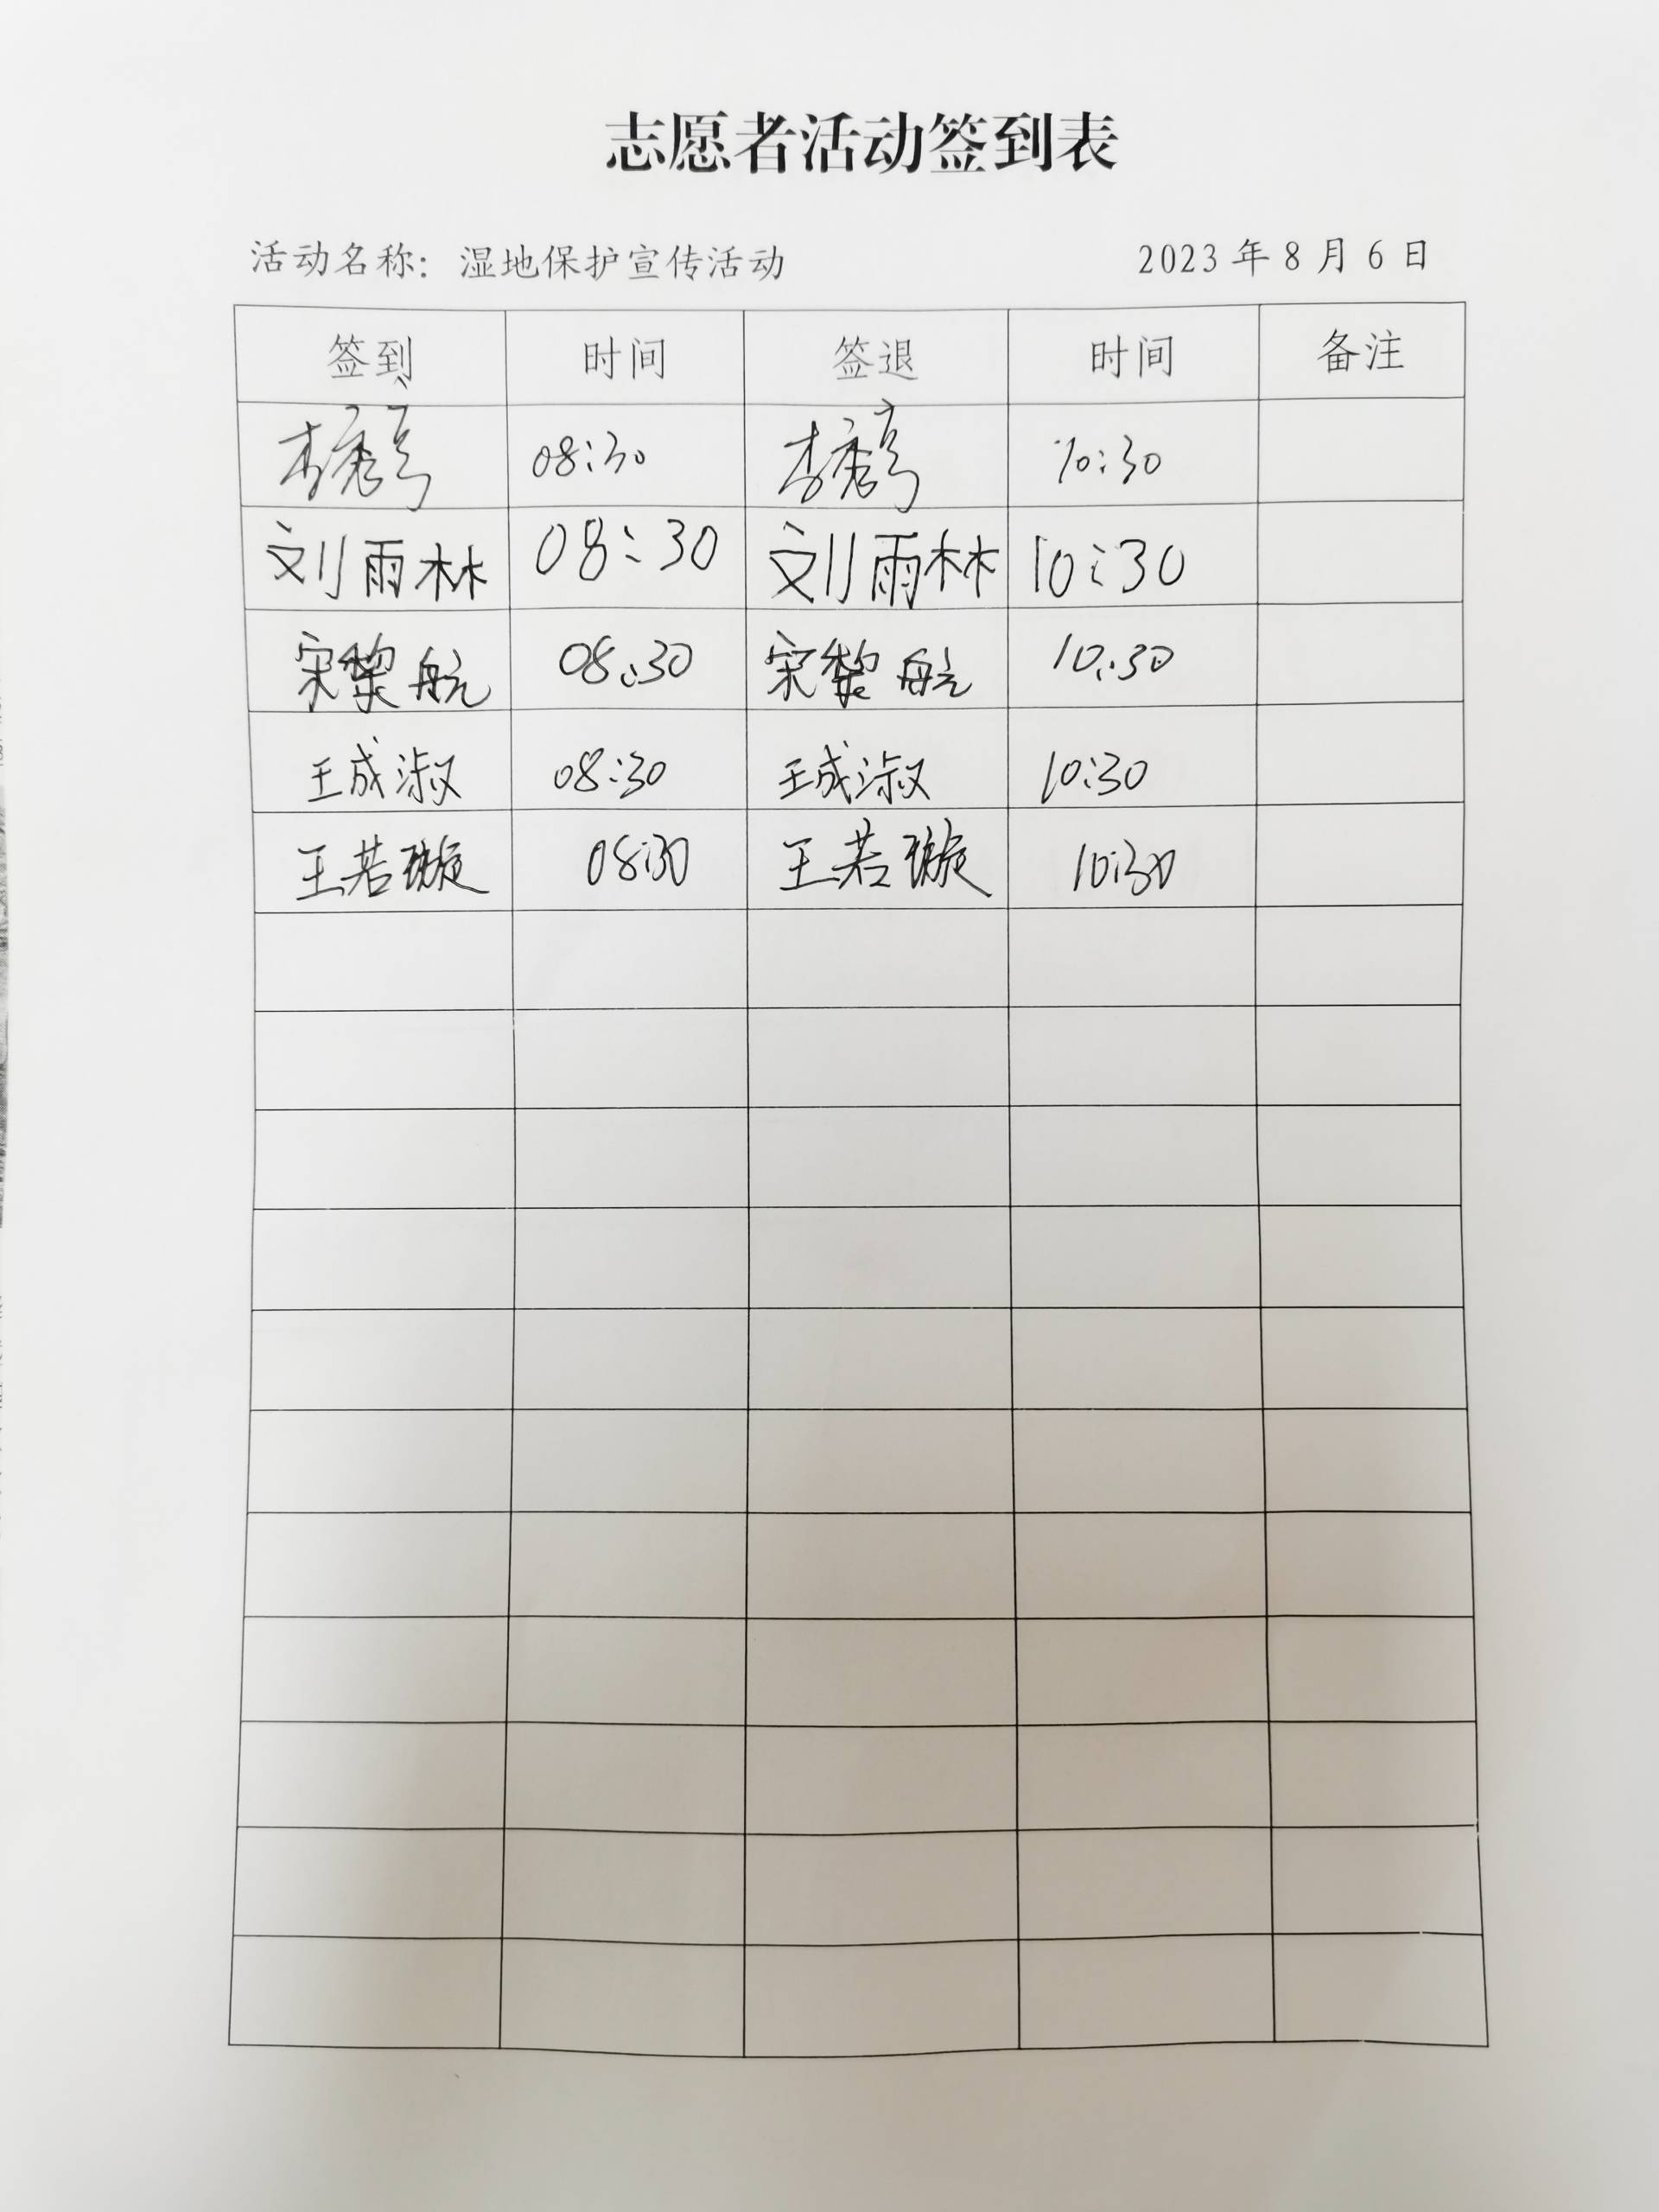 志愿者活动签到表
活动名称：湿地保护宣传活动 2023年8月6日
签到 时间 签退 时间 备注
李秀亭 08:30 李秀亭 10:30
刘雨林 08:30 刘雨林 10:30
宋黎航 08:30 宋黎航 10:30
王成淑 08:30 王成淑 10:30
王若璇 08:30 王若璇 10:30